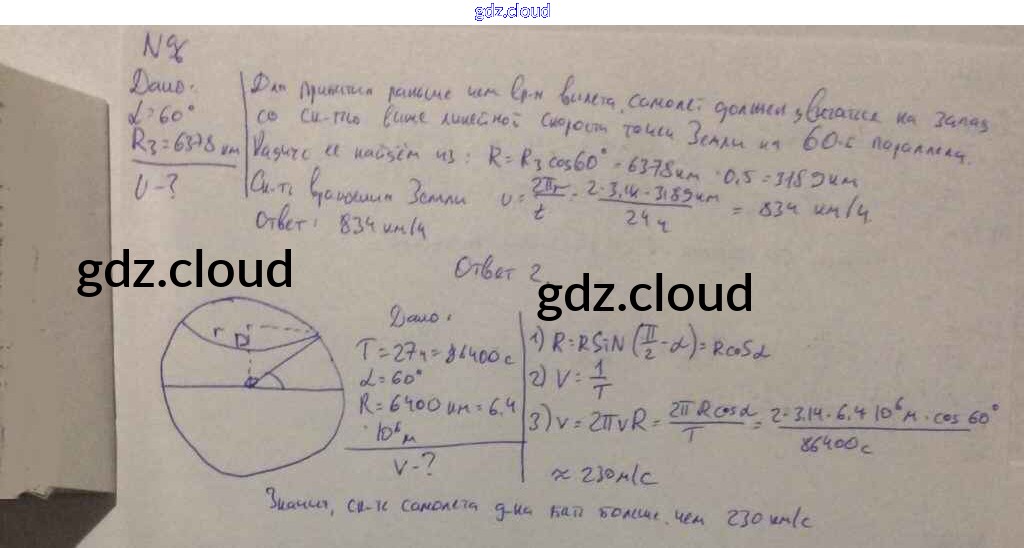 gdz.cloud
N96
Дано:
L=60°
Rз=6378 км
υ-?
Для прибытия раньше чем вр-я вылета, самолет должен двигаться на запад
со ск-тью выше линейной скорости точек Земли на 60-й параллели.
Радиус ее найдём из: R=Rз cos60°=6378км·0,5=3189км
Ск-ть вращения Земли υ=2πr/t=2·3,14·3189км/24ч=834 км/ч
Ответ: 834 км/ч
Ответ 2.
gdz.cloud
gdz.cloud
r
Дано:
T=27ч=86400с
L=60°
R=6400 км=6,4
·10⁶м
V-?
1) R=RSiN(π/2-α)=Rcosα
2) V=1/T
3) v=2πvR=2πRcosα/T=2·3,14·6,4·10⁶м·cos60°/86400с
≈230м/с
Значит, ск-ть самолета д-на быть больше, чем 230 км/с